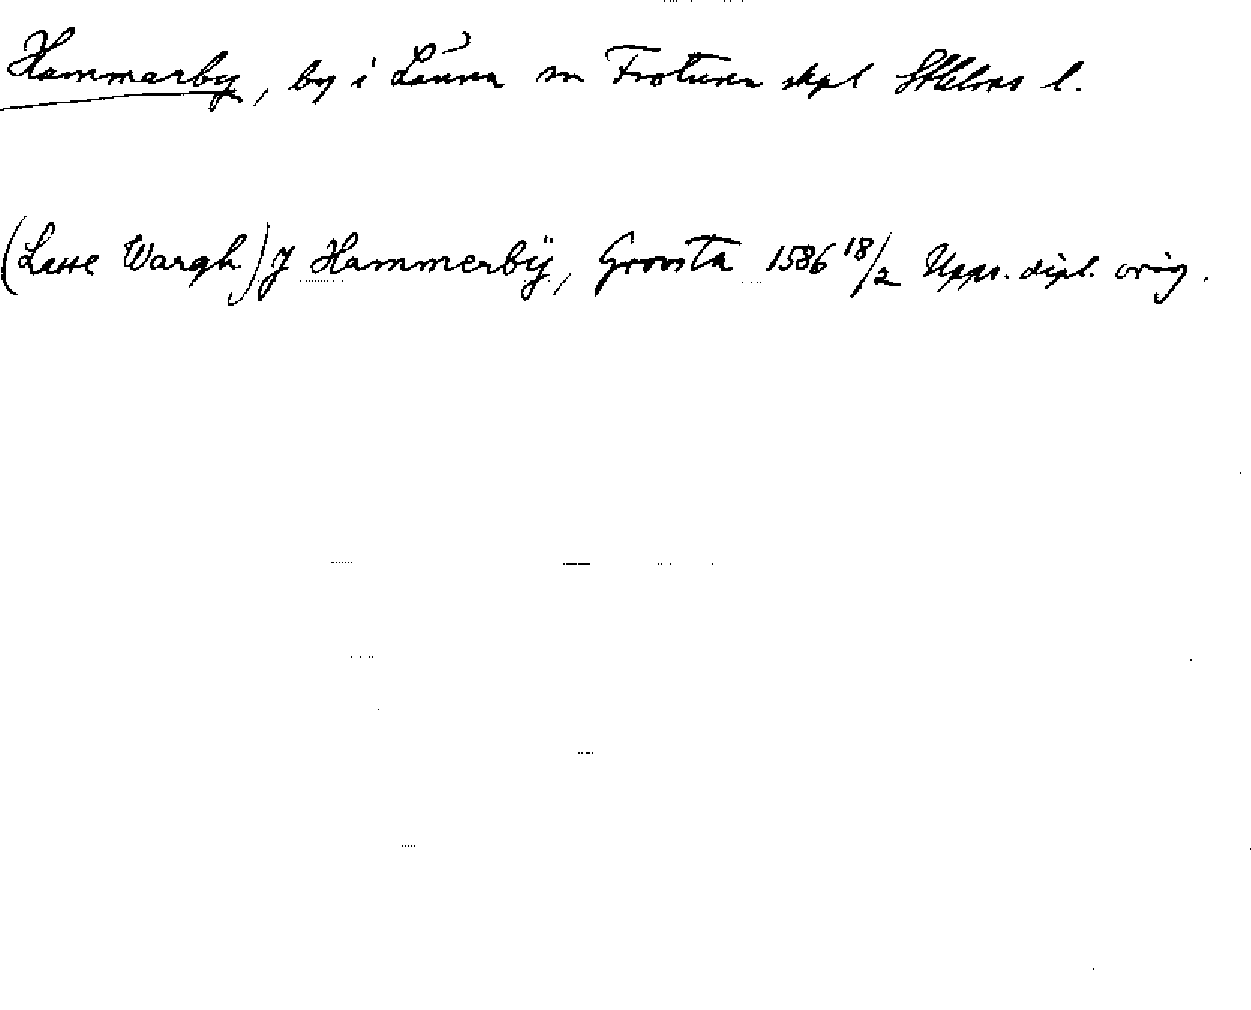 Hammarby, by i Länna sn Frötuna skpl Sthlms l.
(Lasse Wargh) J Hammerbÿ, Groosta 1586 18/2 Upps. dipl. orig.